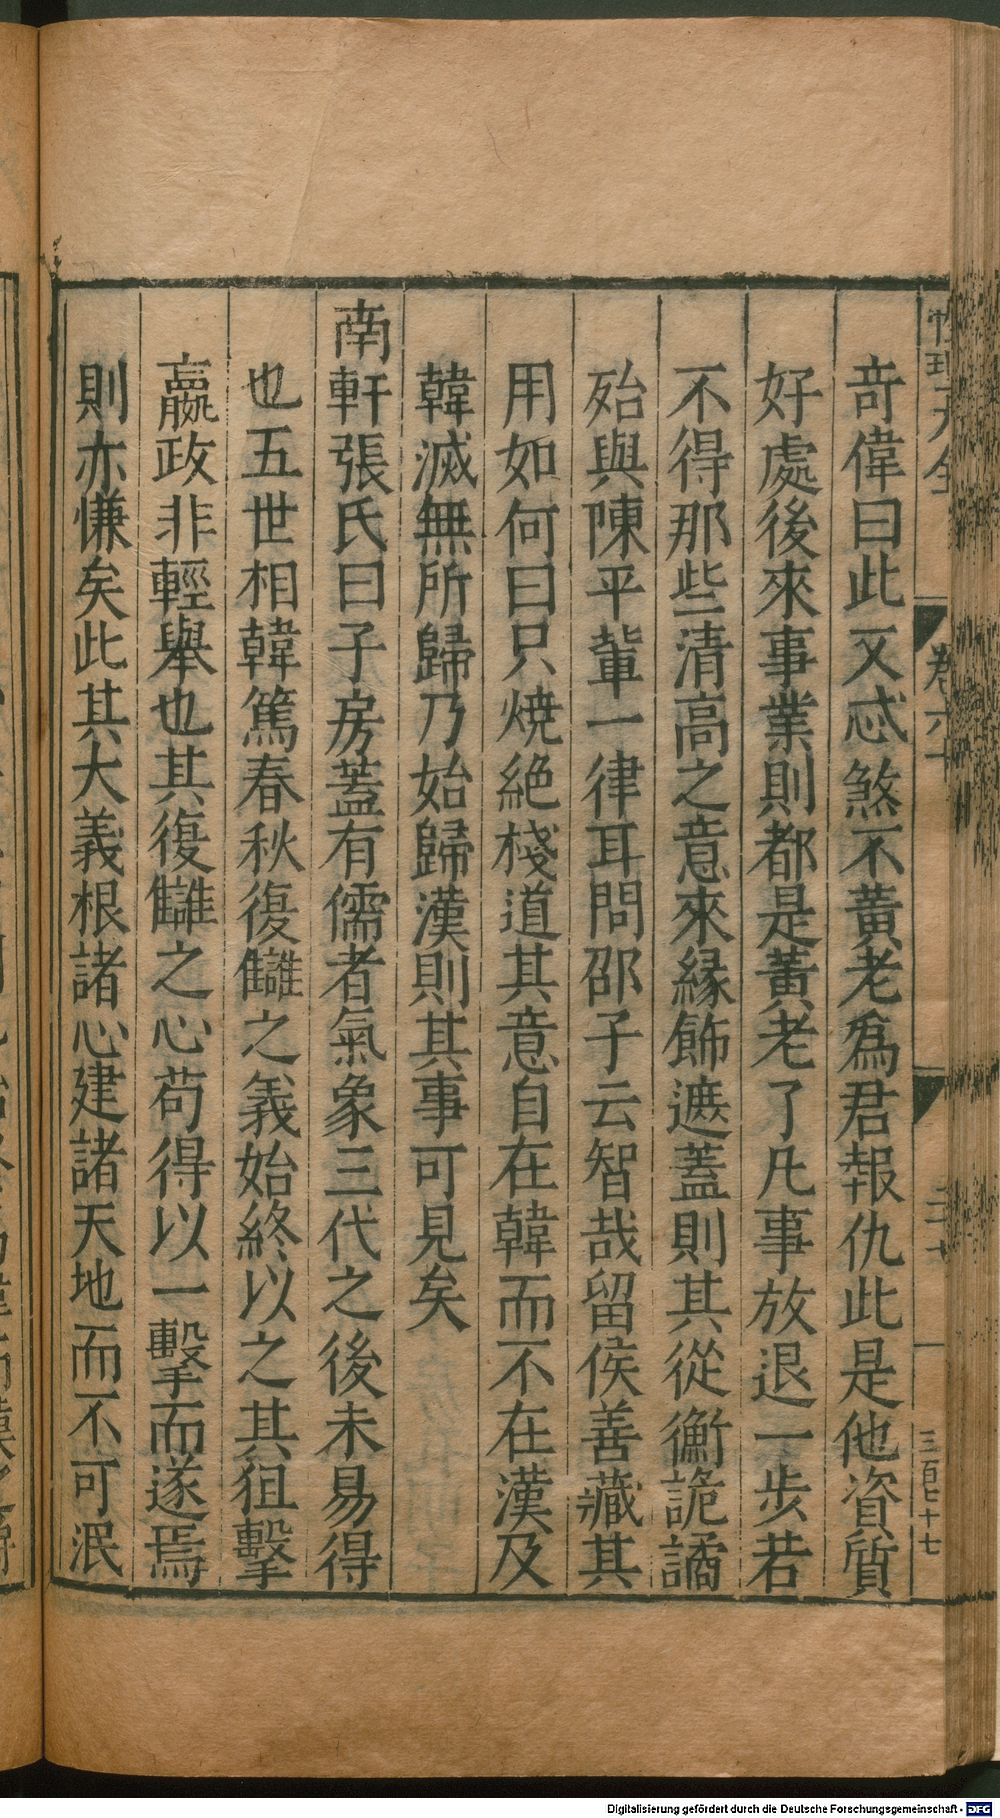 性理大全
卷六十
奇偉曰此又忒煞不黃老爲君報仇此是他資質
好處後來事業則都是黃老了凡事放退一步若
不得那些清高之意來緣飾遮蓋則其從衡詭譎
殆與陳平輩一律耳問邵子云智哉留侯善藏其
用如何曰只燒絶棧道其意自在韓而不在漢及
韓滅無所歸乃始歸漢則其事可見矣
南軒張氏曰子房蓋有儒者氣象三代之後未易得
也五世相韓篤春秋復讎之義始終以之其狙擊
嬴政非輕舉也其復讎之心苟得以一擊而遂焉
則亦慊矣此其大義根諸心建諸天地而不可泯
Digitalisierung gefördert durch die Deutsche Forschungsgemeinschaft - DFG